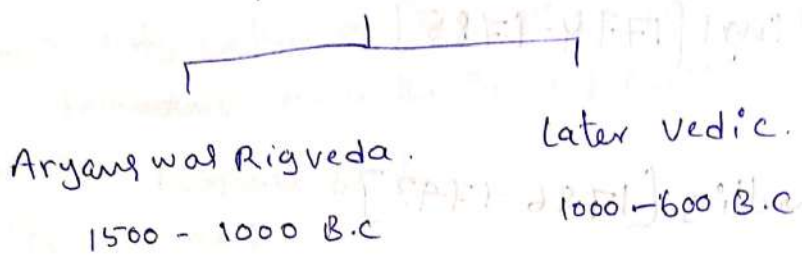 Aryans was Rigveda.
1500 - 1000 B.C
Later Vedic.
1000 - 600 B.C